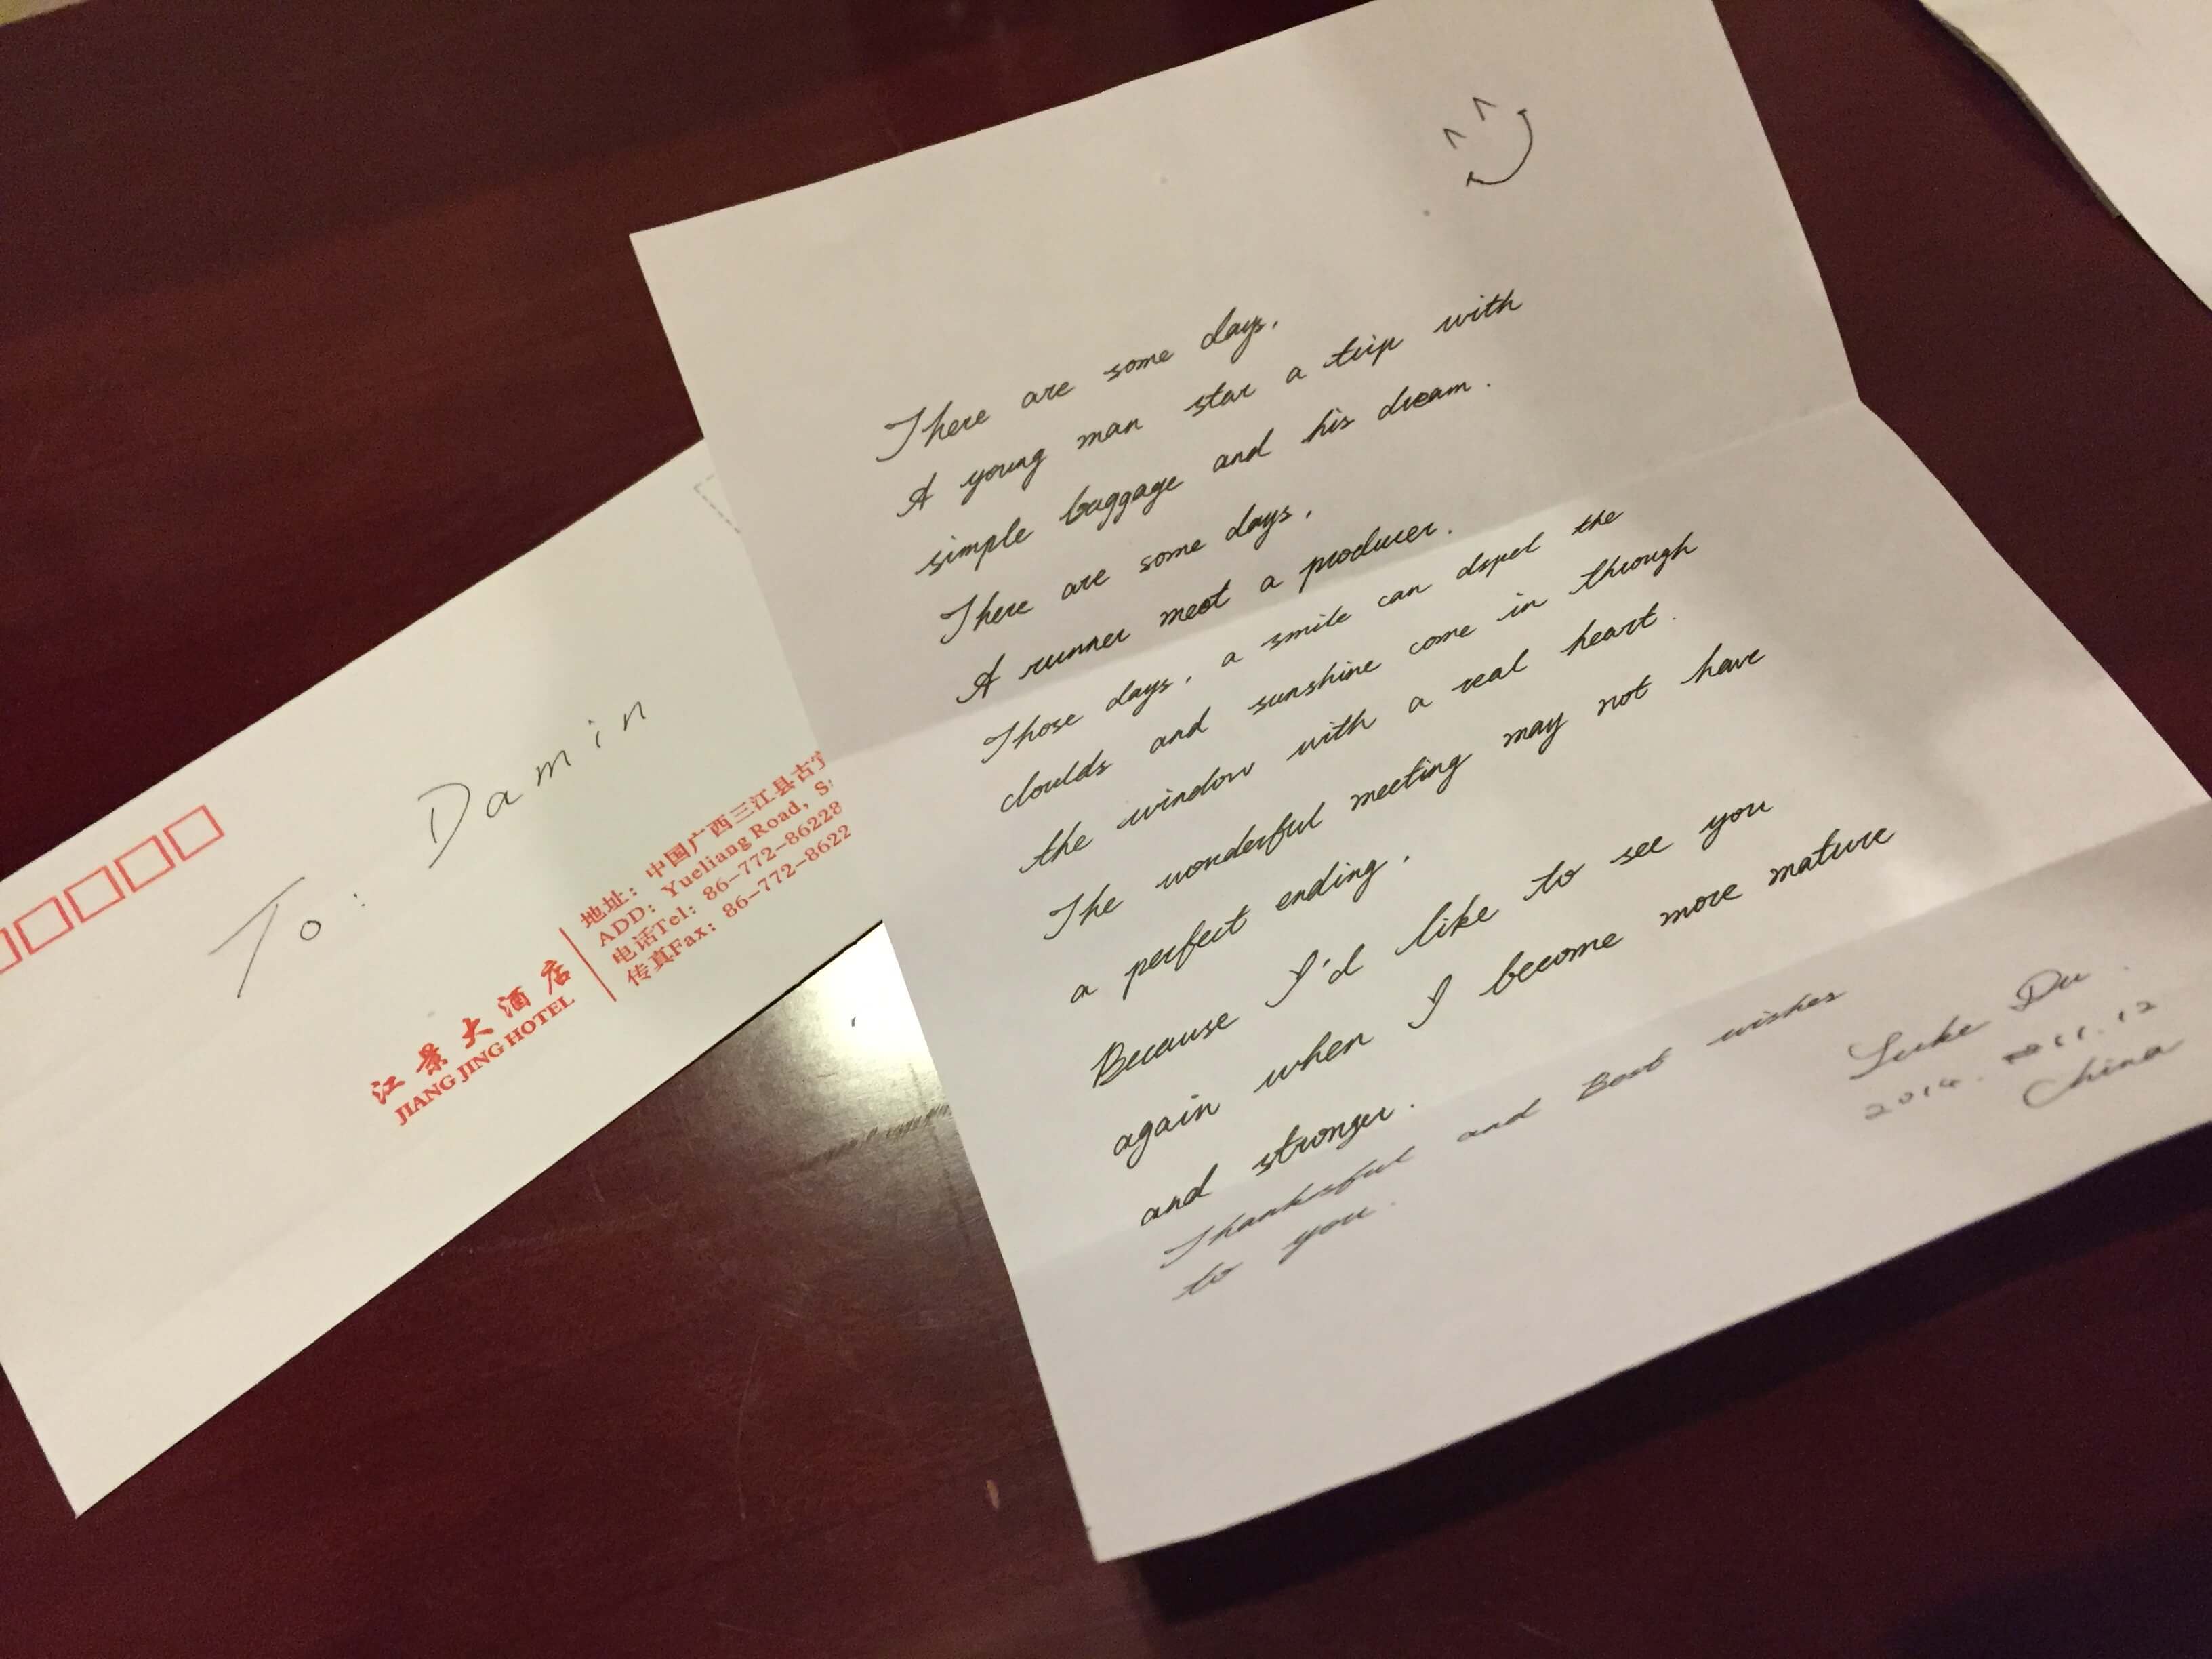 To: Damin
江景大酒店
JIANG JING HOTEL
地址：中国广西三江县古宜
ADD: Yueliang Road, S
电话Tel: 86-772-86228
传真Fax: 86-772-8622
There are some days,
A young man star a trip with
simple baggage and his dream.
There are some days,
A runner meet a producer.
Those days, a smile can dspel the
cloulds and sunshine come in through
the window with a real heart.
The wonderful meeting may not have
a perfect ending,
Because I'd like to see you
again when I become more mature
and stronger.
Thanksful and Best wishes
to you.
Luke Du
2014. 11.12
China